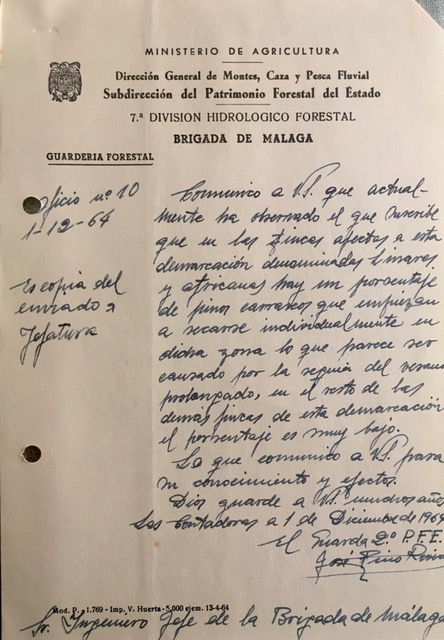 MINISTERIO DE AGRICULTURA
Dirección General de Montes, Caza y Pesca Fluvial
Subdirección del Patrimonio Forestal del Estado
7.ª DIVISION HIDROLOGICO FORESTAL
BRIGADA DE MALAGA
GUARDERIA FORESTAL
Oficio nº 10
1-12-64
Es copia del
enviado a
Jefatura
Comunico a V.S. que actual-
mente ha observado el que suscribe
que en las fincas afectas a esta
demarcación denominadas Linares
y africanas hay un porcentaje
de pinos carrascos que empiezan
a secarse individualmente en
dicha zona lo que parece ser
causado por la sequia del verano
prolongado, en el resto de las
demas fincas de esta demarcación
el porsentaje es muy bajo.
Lo que comunico a V.S. para
su conocimiento y efectos.
Dios guarde a V.S. muchos años
Los Contadores a 1 de Diciembre de 1964
El Guarda 2º P.F.E.
José Pino
Mod. P. - 1.769 - Imp. V. Huerta - 5.000 ejem. 13-4-64
Sr. Ingeniero Jefe de la Brigada de Málaga